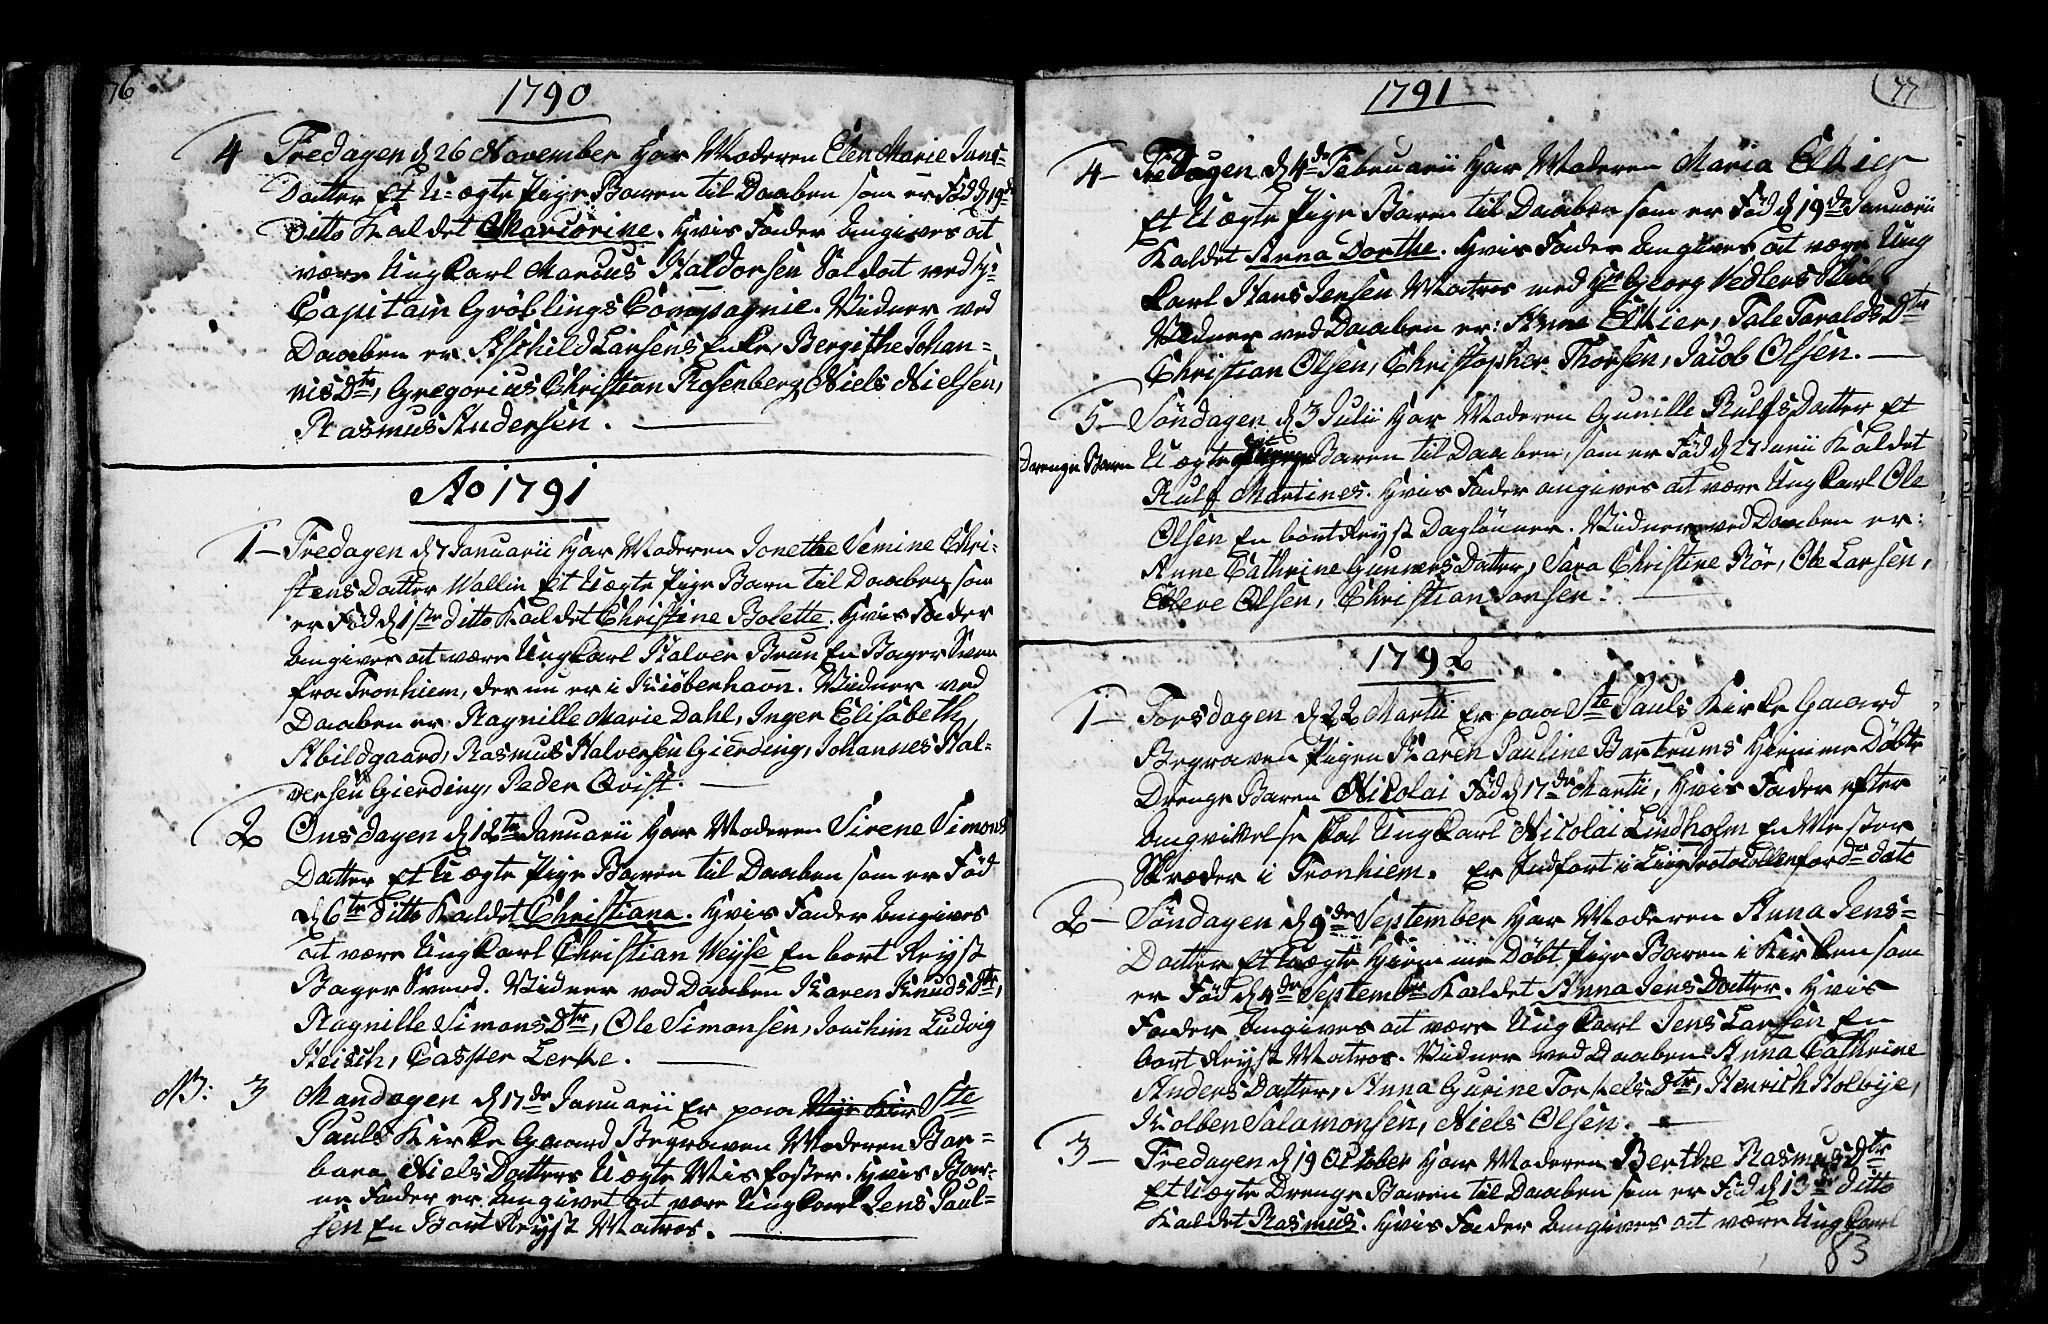 76
1790
4 Fredagen d 26 November Har Moderen Elen Marie Jans-
Datter Et U-ægte Pige Barn til Daaben som er Fød d 19de
Ditto Kaldet Marcorine. Hvis Fader Angives at
være Ung Karl Marcus Haldorsen Soldat ved Hr
Capitain Gröblings Compagnie. Vidner ved
Daaben er Aschild Larsens Enke, Bergithe Johan-
nis Dtr, Gregorius Christian Rosenberg, Niels Nielsen,
Rasmus Andersen.
Ao 1791
1 - Fredagen d 7 Januarii Har Moderen Jonethe Semine Chri-
stens Datter Wallin Et Uægte Pige Barn til Daaben som
er Fød d 1ste ditto Kaldet Christine Bolette. Hvis Fader
Angives at være Ung Karl Halver Brun En Bager Svend
fra Tronhiem, der nu er i Kiøbenhavn. Vidner ved
Daaben er Ragnille Marie Dahl, Inger Elisabeth
Abildgaard, Rasmus Halversen Gierding, Johannes Hal-
versen Gierding, Peder Qvist.
2 Onsdagen d 12te Januarii Har Moderen Sirene Simons
Datter Et Uægte Pige Barn til Daaben som er Fød
d 6te ditto Kaldet Christiana. Hvis Fader Angives
at være Ung Karl Christian Weyse En bort Reyst
Bager Svend. Vidner ved Daaben Karen Knuds Dtr,
Ragnille Simons Dtr, Ole Simonsen, Joachim Ludvig
Heisch, Casper Lerke.
NB: 3 Mandagen d 17de Januarii Er paa Nye Kir Ste
Pauls Kirke Gaard Begraven Moderen Bar-
bara Niels Datters Uægte Misfoster. Hvis Bar-
ne Fader er Angivet at være Ung Karl Jens Paul-
sen En Bort Reyst Matros.
1791
77
4 - Fredagen d 4de Februarii Har Moderen Maria Elkier
Et Uægte Pige Barn til Daaben som er Fød d 19de Januarii
Kaldet Anna Dorthe. Hvis Fader Angives at være Ung
Karl Hans Jensen Matros med Hr Georg Vedlers Skib
Vidner ved Daaben er: Anne Elkier, Tale Taralds Dtr
Christian Olsen, Christopher Thorsen, Jacob Olsen.
5 - Söndagen d 3 Julii Har Moderen Gunille Rulfs Datter Et
Drenge Barn Uægte Barn til Daaben, som er Fød d 27 Junii Kaldet
Rulf Martines. Hvis Fader angives at være Ung Karl Ole
Olsen En bort Reyst Daglønner. Vidner ved Daaben er:
Anne Cathrine Gunners Datter, Sara Christine Rör, Ole Larsen,
Eleve Olsen, Christian Jansen.
1792
1 - Torsdagen d 22 Martii Er paa Ste Pauls Kirke Gaard
Begraven Pigen Karen Pauline Bartrums Hiemme Døbte
Drenge Barn Nicolai Fød d 17de Martii, Hvis Fader efter
Angivelse skal Ung Karl Nicolai Lindholm En Mester
Skræder i Tronhiem. Er Indfort i Liig Protocollen for do dato
2 - Söndagen d 9de September Har Moderen Anna Jens-
Datter Et Uægte Hiemme Døbt Pige Barn i Kirken som
er Fød d 4de September Kaldet Anna Jens Datter. Hvis
Fader Angives at være Ung Karl Jens Larsen En
bort Reyst Matros. Vidner ved Daaben Anna Cathrine
Anders Datter, Anna Gurine Torkels Dtr, Henrich Holbye,
Kolben Salamonsen, Niels Olsen.
3 - Fredagen d 19 October Har Moderen Berthe Rasmus Dtr
Et Uægte Drenge Barn til Daaben som er Fød d 13de ditto
Kaldet Rasmus. Hvis Fader Angives at være Ung Karl
83